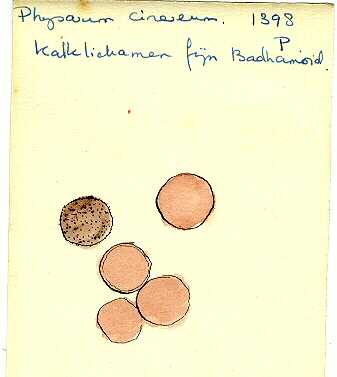 Physarum cinereum. 1398
P
Kalklichamen fijn Badhamoid.